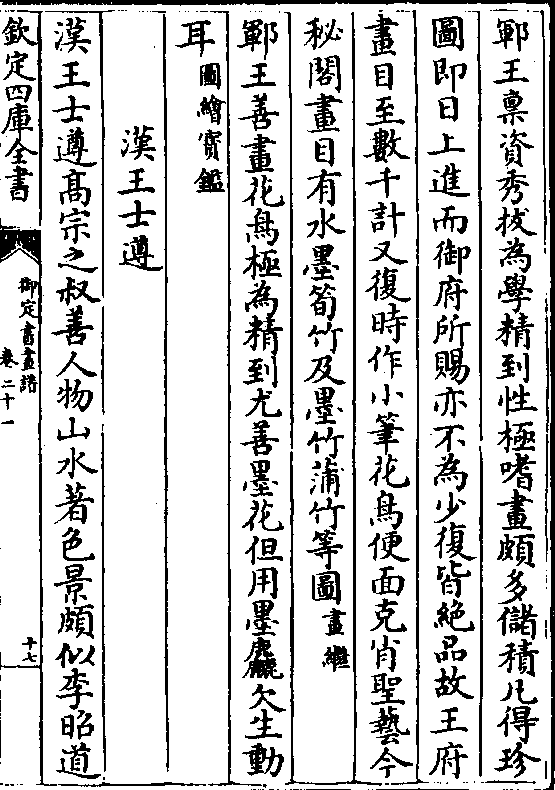 鄆王稟資秀拔為學精到性極嗜畫頗多儲積凡得珍
圖即日上進而御府所賜亦不為少復皆絶品故王府
畫目至數千計又復時作小筆花鳥便面克肖聖藝今
秘閣畫目有水墨筍竹及墨竹蒲竹等圖畫繼
鄆王善畫花鳥極為精到尤善墨花但用墨麤欠生動
耳圖繪寳鑑
漢王士遵
漢王士遵髙宗之叔善人物山水著色景頗似李昭道
欽定四庫全書
御定書畫譜
卷二十一
十七